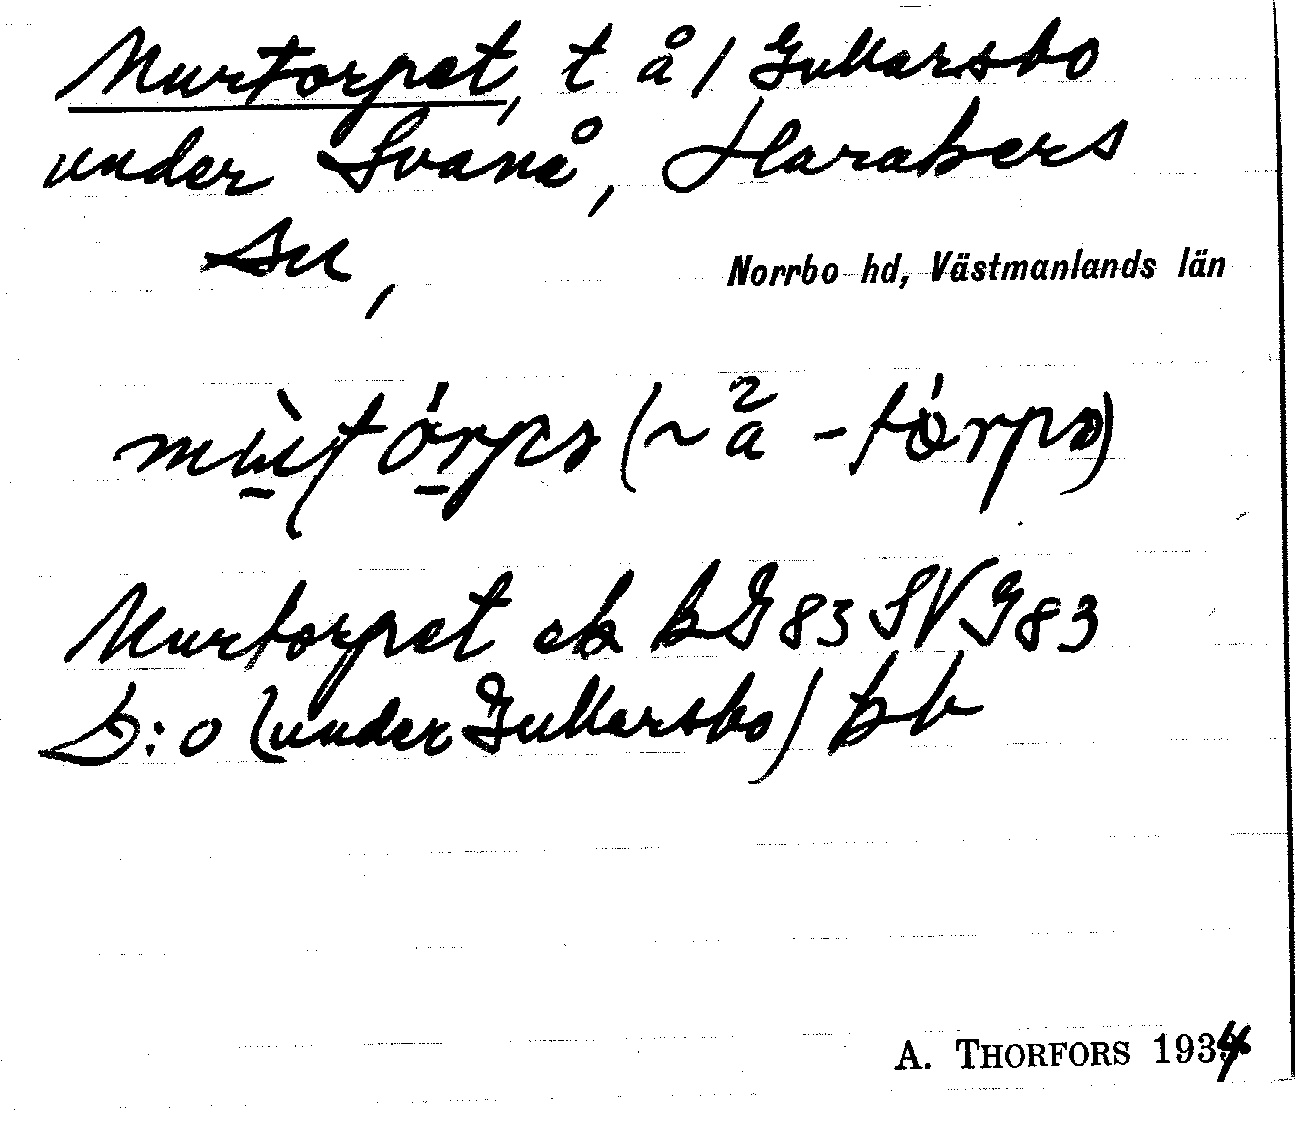 Murtorpet, t å / Gullarsbo
under Svanå, Haraker s
sn,
Norrbo hd, Västmanlands län
(~ å -tórpə)
Murtorpet ek bG83 SVG83
D:o (under Gullarsbo) bb
A. THORFORS 1934